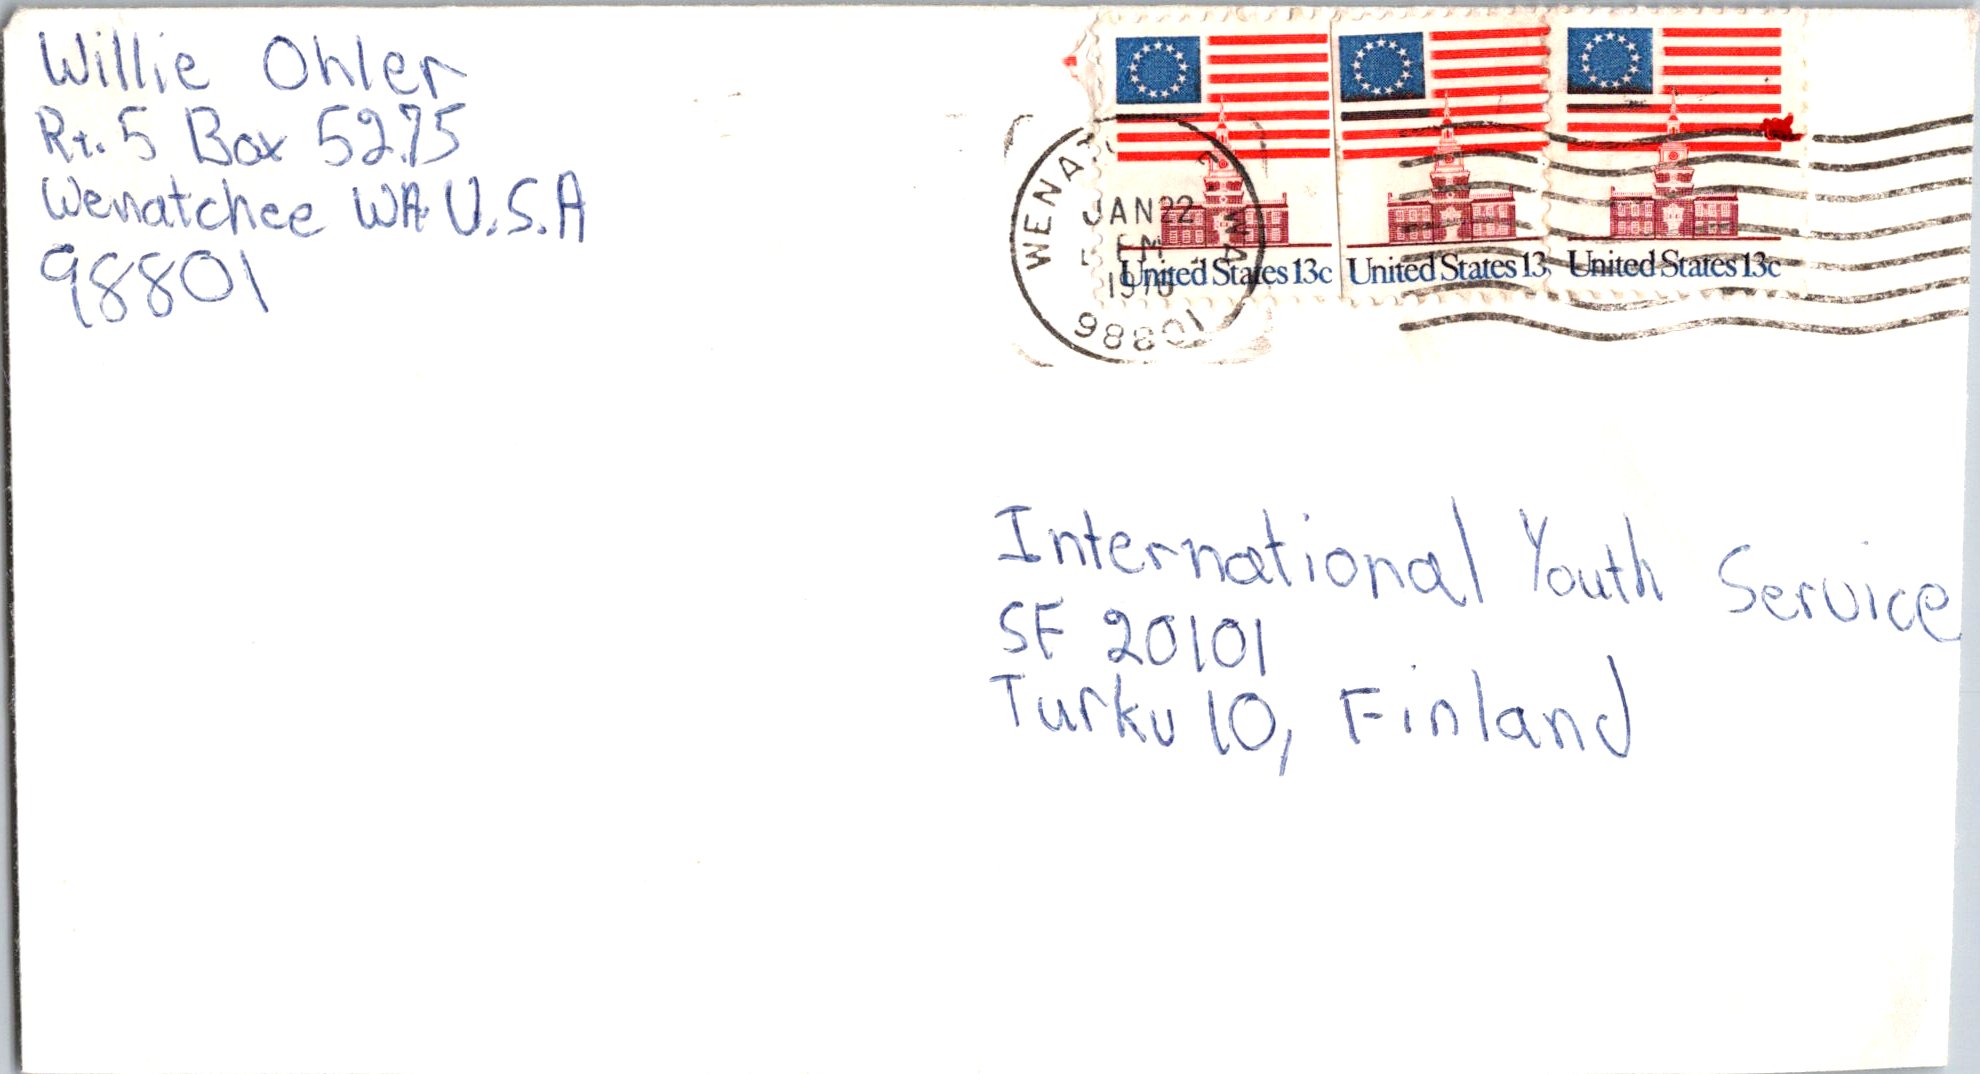 Willie Ohler
Rt. 5 Box 5275
Wenatchee WA U.S.A
98801
JAN 22
PM
98801
United States 13c
United States 13
United States 13c
International Youth Service
SF 20101
Turku 10, Finland